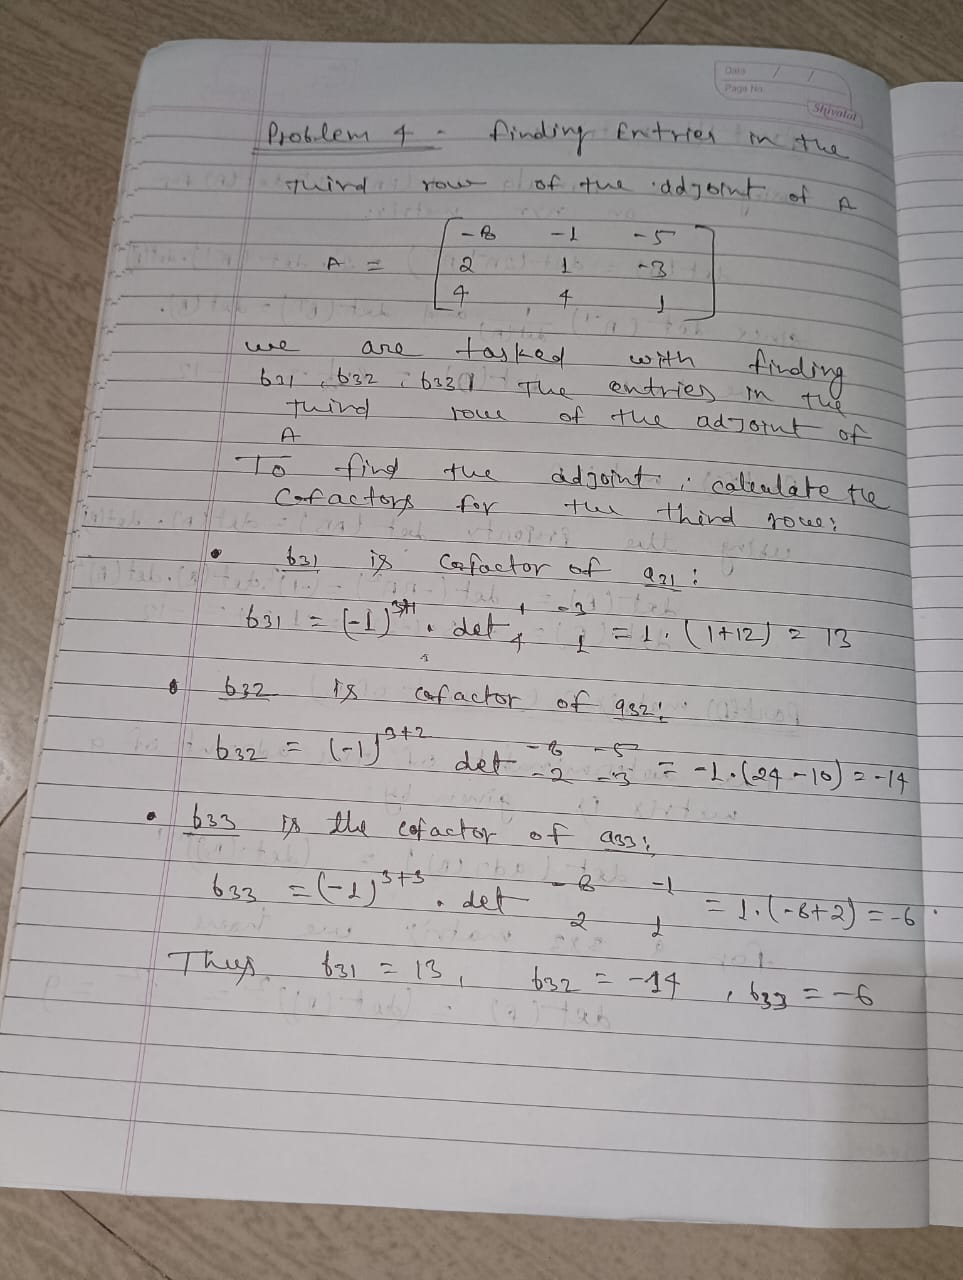 Date / /
Page No.
Shivalal
Problem 4 - finding Entries in the
third row of the adjoint of A
A = [ -8 -1 -5
2 1 -3
4 4 1 ]
we are tasked with finding
b31, b32, b33, The entries in the
third row of the adjoint of
A
To find the adjoint, calculate the
Cofactors for the third row:
• b31 is cofactor of a31:
b31 = (-1)^3+1 . det 1 -3
4 1 = 1. (1+12) = 13
• b32 is cofactor of a32:
b32 = (-1)^3+2 det -8 -5
-2 -3 = -1.(24-10) = -14
• b33 is the cofactor of a33:
b33 = (-1)^3+3 . det -8 -1
2 1 = 1.(-8+2) = -6.
Thus b31 = 13, b32 = -14, b33 = -6